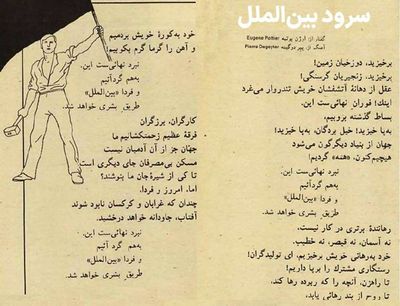 سرود بین‌الملل
گفتار از: اوژن پوتیه Eugene Pottier
آهنگ از: پیر دوگیته Pierre Degeyter
برخیزید، دوزخیان زمین!
برخیزید، زنجیریان گرسنگی!
عقل از دهانهٔ آتشفشان خویش تندروار می‌غرد
اینك! فوران نهائی‌ست این.
بساط گذشته بروبیم،
به‌پا خیزید! خیل بردگان، به‌پا خیزید!
جهان از بنیاد دیگرگون می‌شود
هیچیم‌کنون، «همه» گردیم!
نبرد نهائی‌ست این.
به‌هم گردآئیم
و فردا «بین‌الملل»
طریق بشری خواهد شد.
رهانندهٔ برتری در کار نیست،
نه آسمان، نه قیصر، نه خطیب.
خود به‌رهائی خویش برخیزیم، ای تولیدگران!
رستگاری مشترك را برپا داریم!
تا راهزن، آنچه را که ربوده رها کند،
تا روح از بند رهائی یابد،
خود به‌کورهٔ خویش بردمیم
و آهن را گرما گرم بکوبیم!
نبرد نهائی‌ست این.
به‌هم گردآئیم
و فردا «بین‌الملل»
طریق بشری خواهد شد.
کارگران، برزگران
فرقهٔ عظیم زحمتکشانیم ما
جهان جز از آن آدمیان نیست
مسکن بی‌مصرفان جای دیگری است
تا کی از شیرهٔ جان ما بنوشند؟
اما، امروز و فردا،
چندان که غرابان و کرکسان نابود شوند
آفتاب، جاودانه خواهد درخشید.
نبرد نهائی‌ست این.
به‌هم گردآئیم
و فردا «بین‌الملل»
طریق بشری خواهد شد.